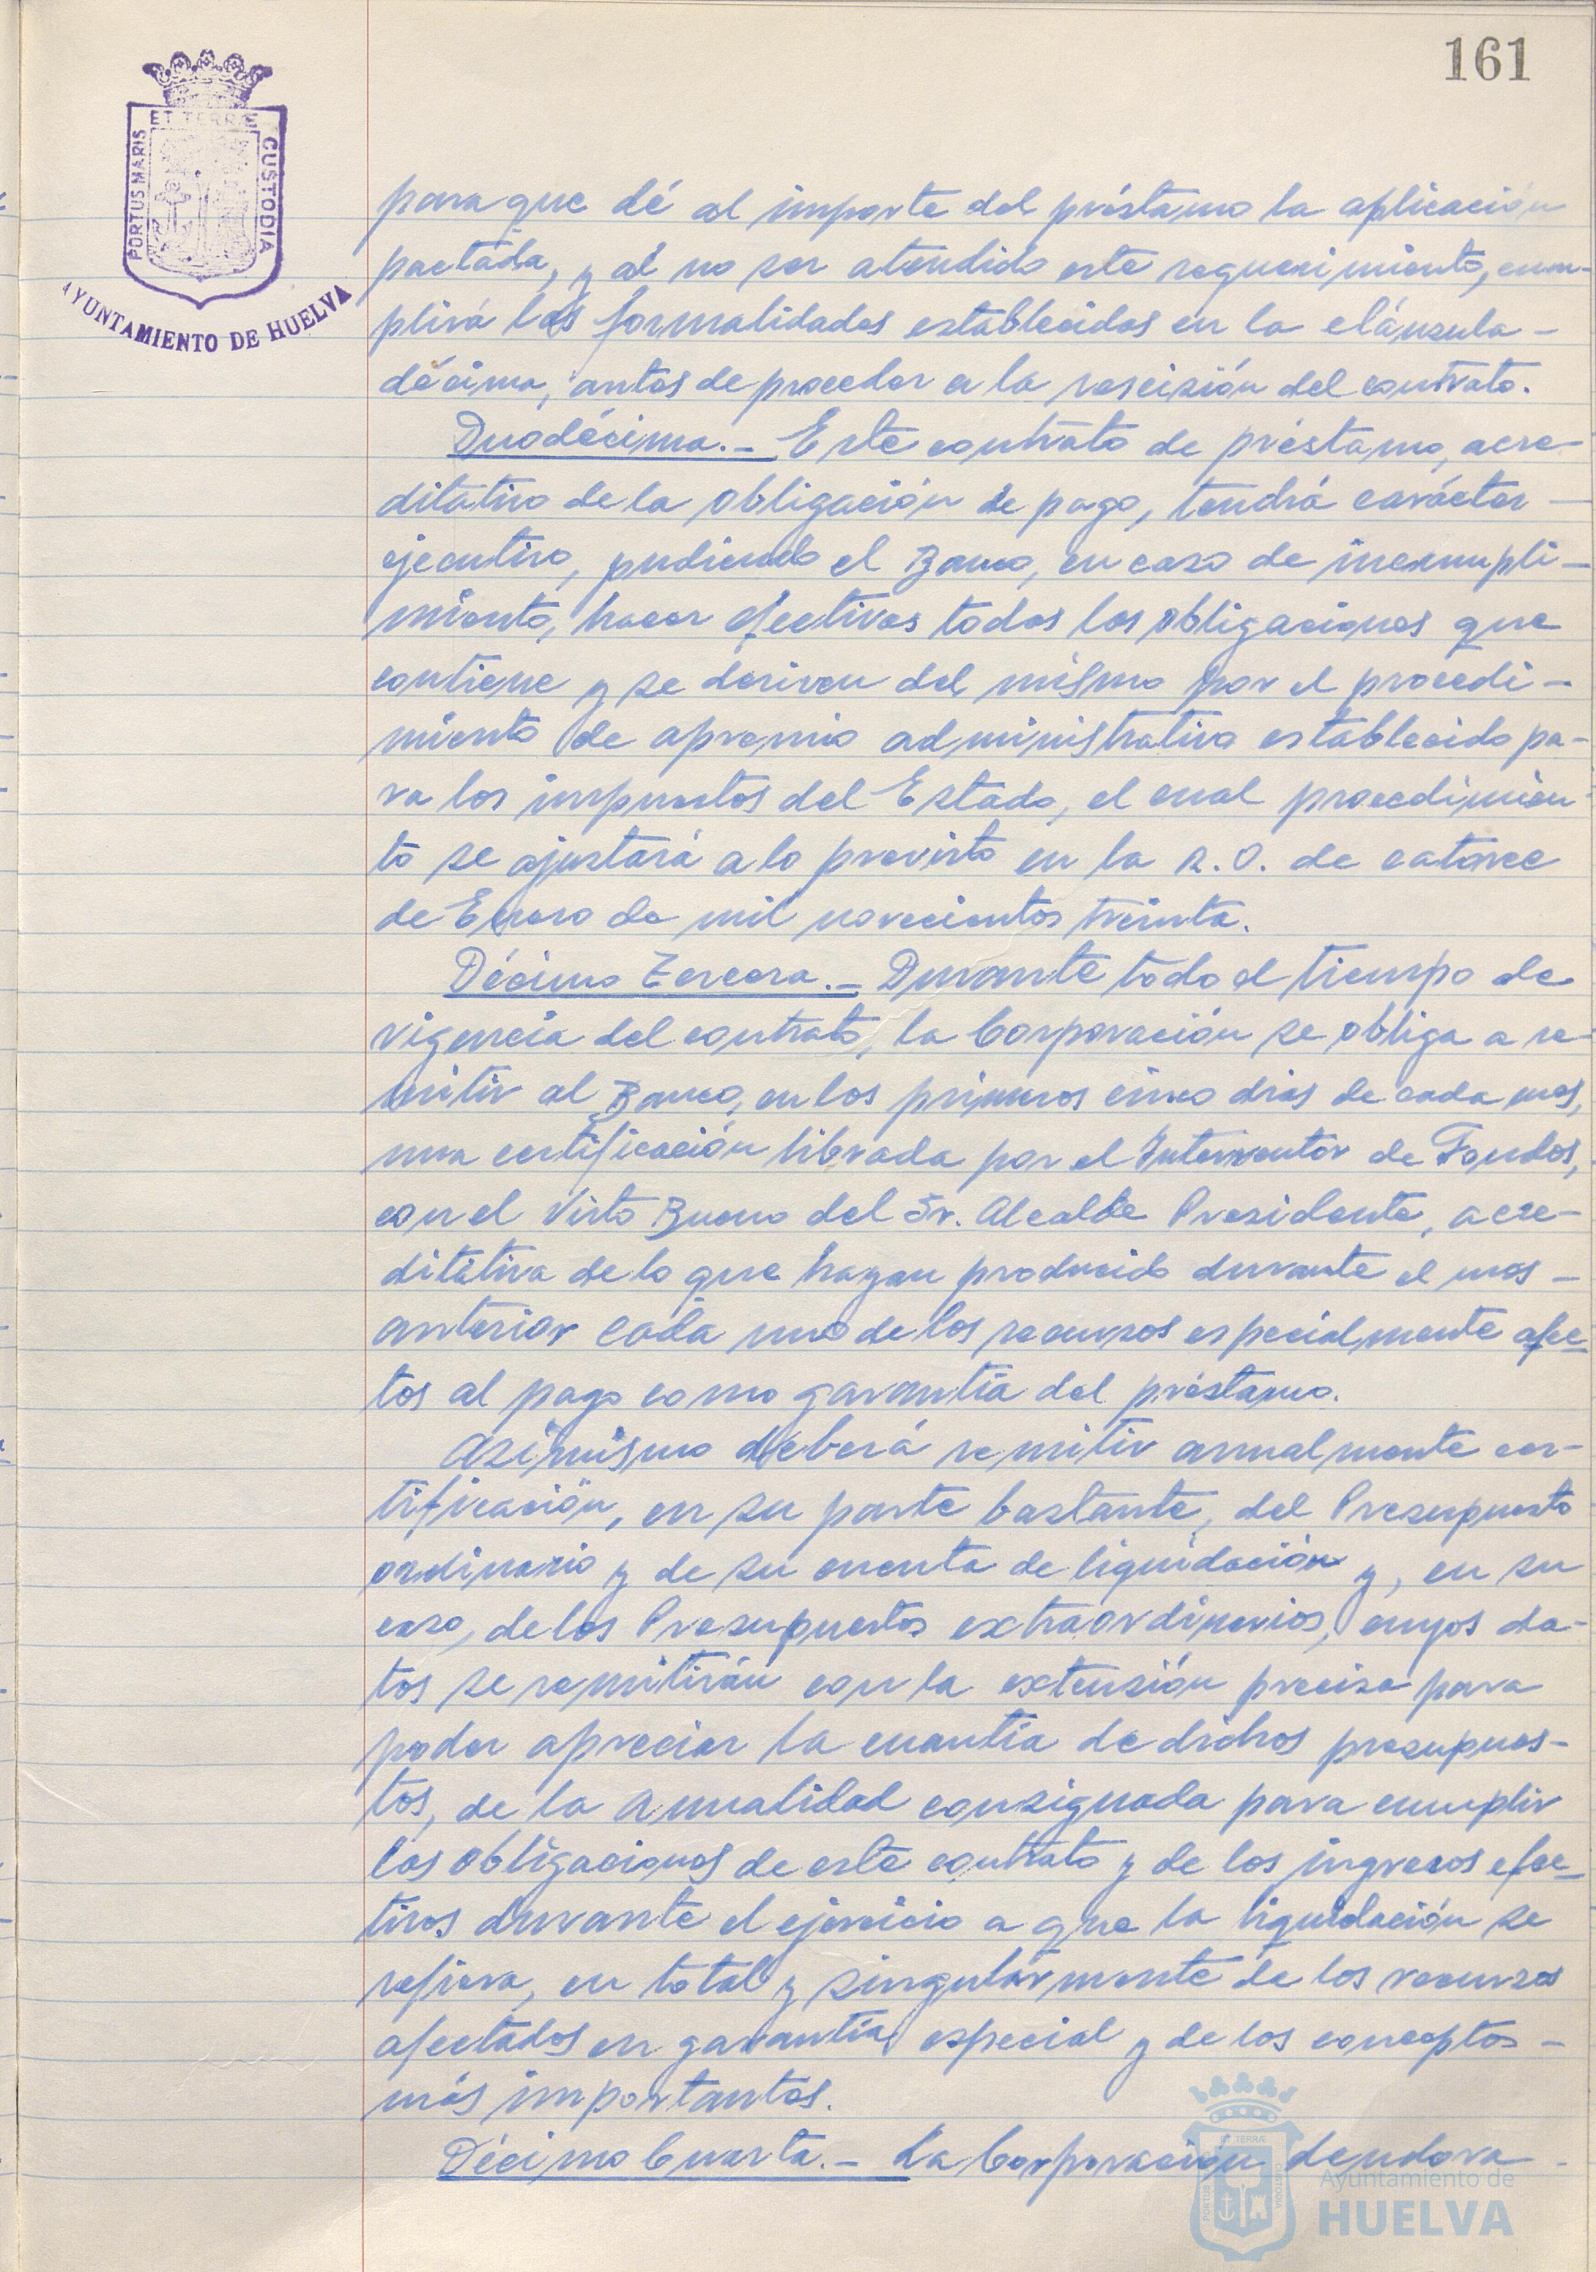 161
ET TERRÆ
PORTUS MARIS
CUSTODIA
AYUNTAMIENTO DE HUELVA
para que dé al importe del préstamo la aplicación
pactada, y al no ser atendido este requerimiento, cum-
plirá las formalidades establecidas en la cláusula -
décima, antes de proceder a la rescisión del contrato.
Duodécima.- Este contrato de préstamo, acre-
ditativo de la obligación de pago, tendrá carácter -
ejecutivo, pudiendo el Banco, en caso de incumpli-
miento, hacer efectivas todas las obligaciones que
contiene y se deriven del mismo por el procedi-
miento de apremio administrativo establecido pa-
ra los impuestos del Estado, el cual procedimien-
to se ajustará a lo previsto en la R.O. de catorce
de Enero de mil novecientos treinta.
Décimo Tercera.- Durante todo el tiempo de
vigencia del contrato, la Corporación se obliga a re-
mitir al Banco, en los primeros cinco dias de cada mes,
una certificación librada por el Interventor de Fondos,
con el Visto Bueno del Sr. Alcalde Presidente, acre-
ditativa de lo que hayan producido durante el mes -
anterior cada uno de los recursos especialmente afec-
tos al pago como garantía del préstamo.
Asimismo deberá remitir anualmente cer-
tificación, en su parte bastante, del Presupuesto
ordinario y de su cuenta de liquidación y, en su
caso, de los Presupuestos extraordinarios, cuyos da-
tos se remitirán con la extensión precisa para
poder apreciar la cuantía de dichos presupues-
tos, de la anualidad consignada para cumplir
las obligaciones de este contrato y de los ingresos efec-
tivos durante el ejercicio a que la liquidación se
refiera, en total y singularmente de los recursos
afectados en garantía especial y de los conceptos -
más importantes.
Décimo Cuarta.- La Corporación deudora -
ET TERRÆ
PORTUS
CUSTODIA
Ayuntamiento de
HUELVA